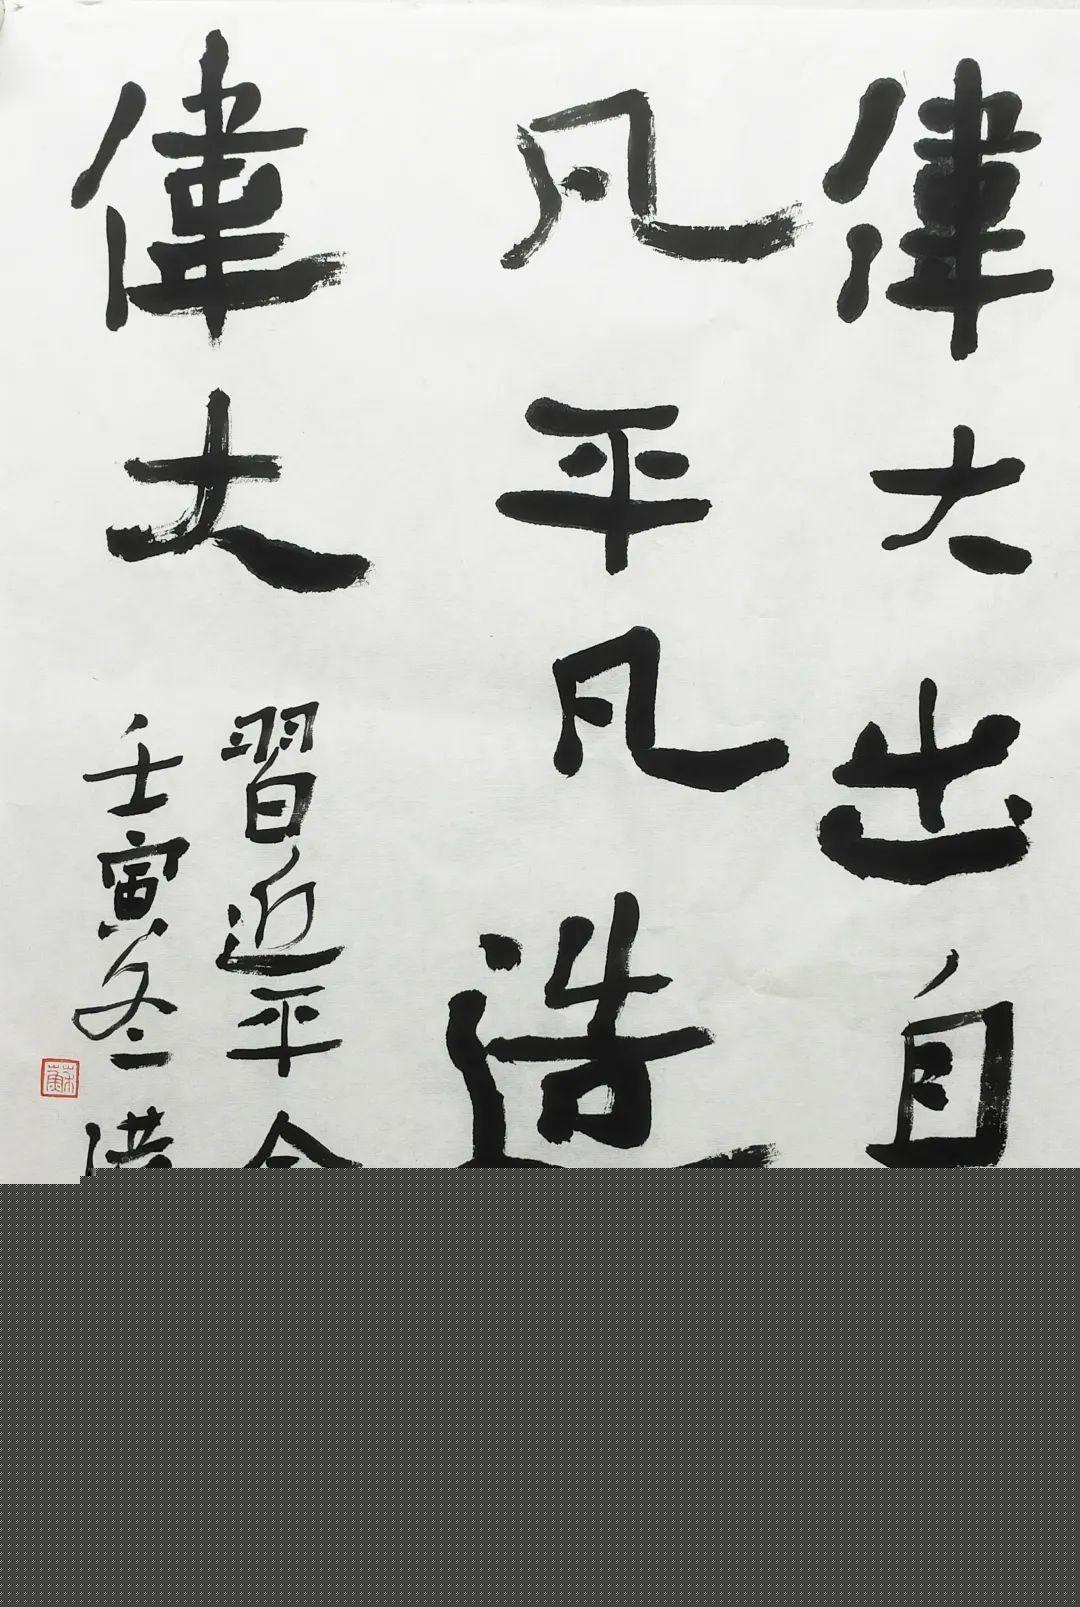 偉大出自
凡平凡造
偉大
習近平
壬寅冬
蘇